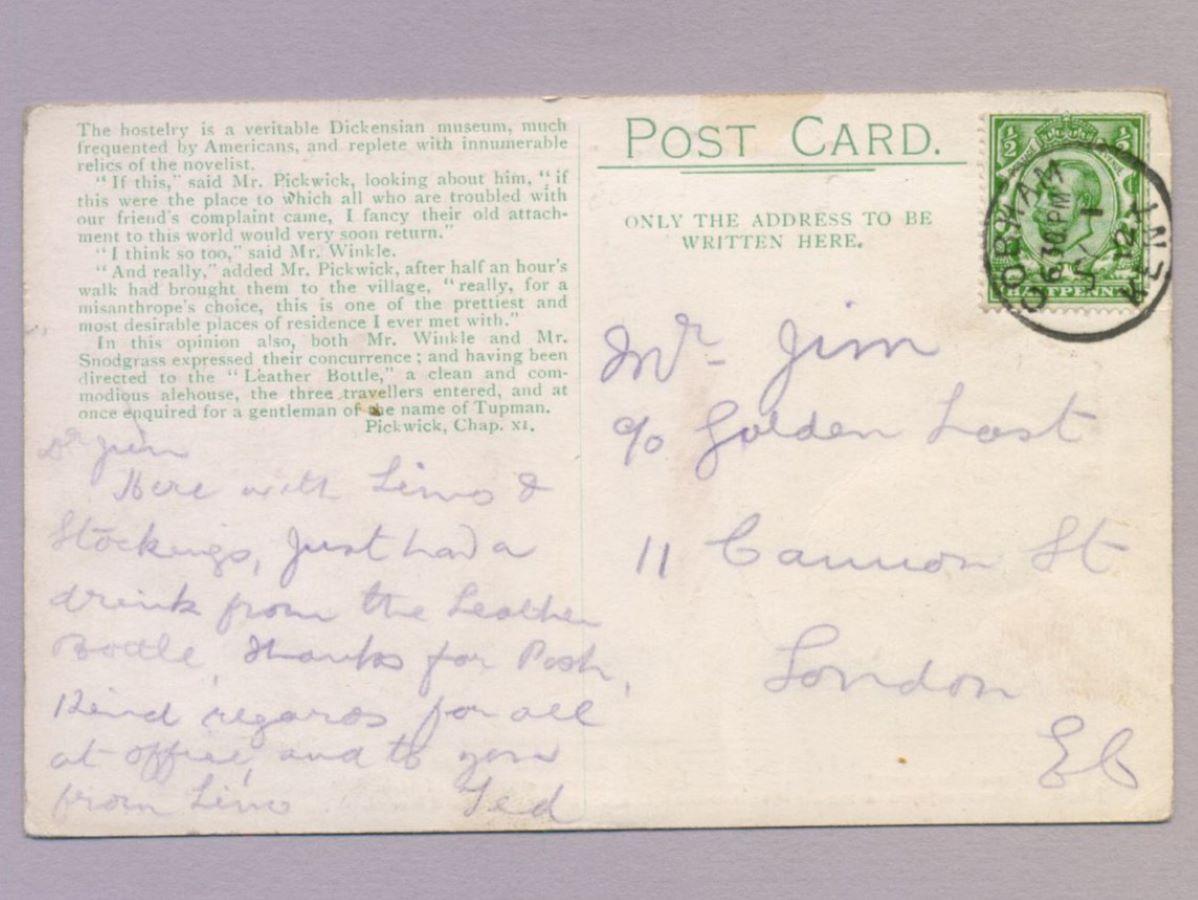 The hostelry is a veritable Dickensian museum, much
frequented by Americans, and replete with innumerable
relics of the novelist.
"If this," said Mr. Pickwick, looking about him, "if
this were the place to which all who are troubled with
our friend's complaint came, I fancy their old attach-
ment to this world would very soon return."
"I think so too," said Mr. Winkle.
"And really," added Mr. Pickwick, after half an hour's
walk had brought them to the village, "really, for a
misanthrope's choice, this is one of the prettiest and
most desirable places of residence I ever met with."
In this opinion also, both Mr. Winkle and Mr.
Snodgrass expressed their concurrence; and having been
directed to the "Leather Bottle," a clean and com-
modious alehouse, the three travellers entered, and at
once enquired for a gentleman of the name of Tupman.
Pickwick, Chap. XI.
Dr Jim
Here with Limo &
Stockings, Just had a
drink from the Leather
Bottle, thanks for Posh,
Kind regards for all
at office, and to your
from Limo Ted
POST CARD.
ONLY THE ADDRESS TO BE
WRITTEN HERE.
Mr Jim
c/o Golden Last
11 Cannon St
London
EC
1/2 1/2
HALFPENNY
COBHAM
6.30 PM
1
12
KENT